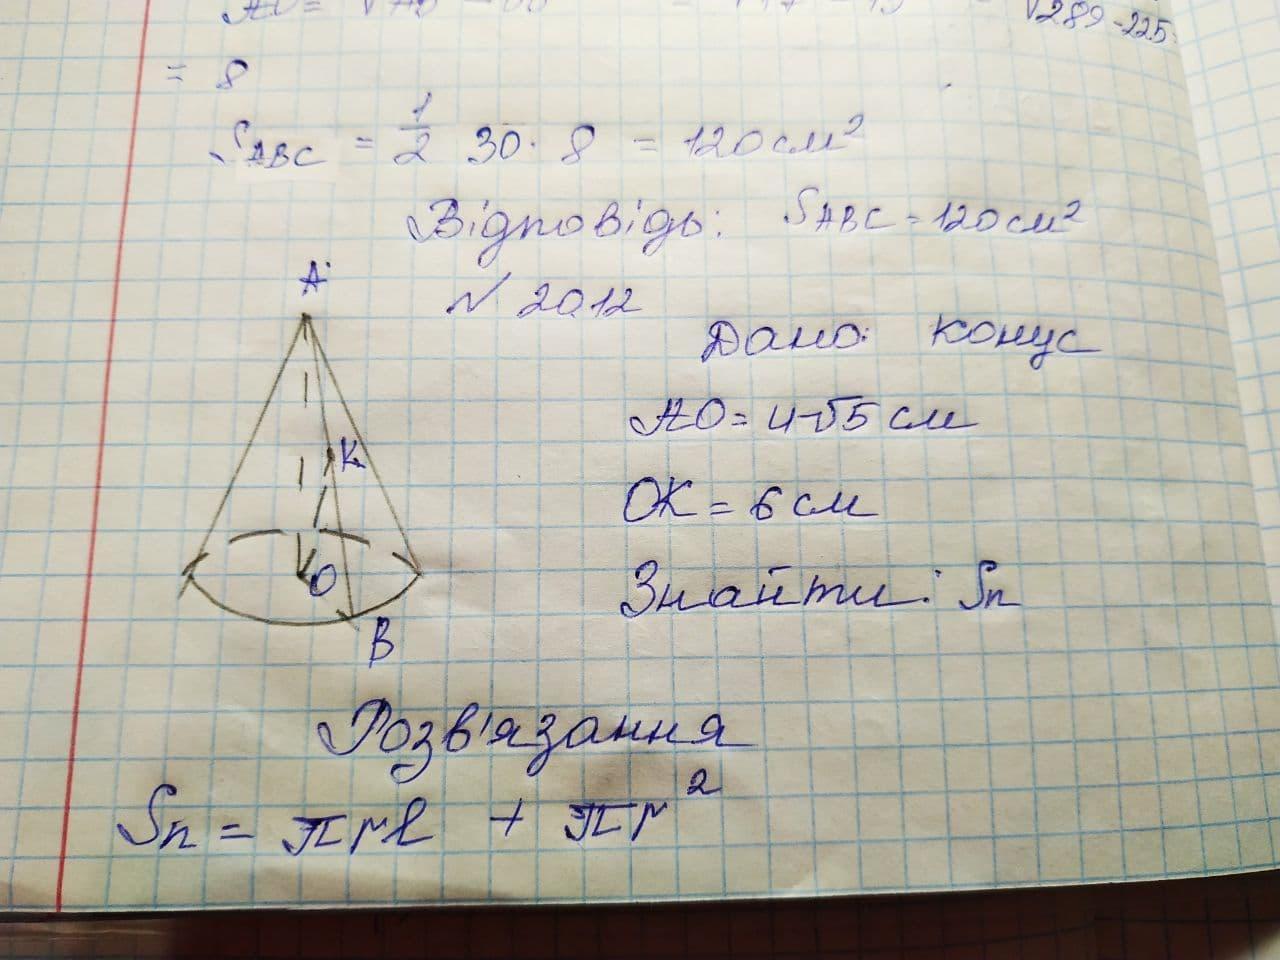 = √289-225
= 8
S ABC = 1/2 30 · 8 = 120 см²
Відповідь: S ABC = 120 см²
№ 20.12
Дано: конус
AO = 4√5 см
OK = 6 см
Знайти: Sп
A
K
O
B
Розв'язання
Sп = πrl + πr²